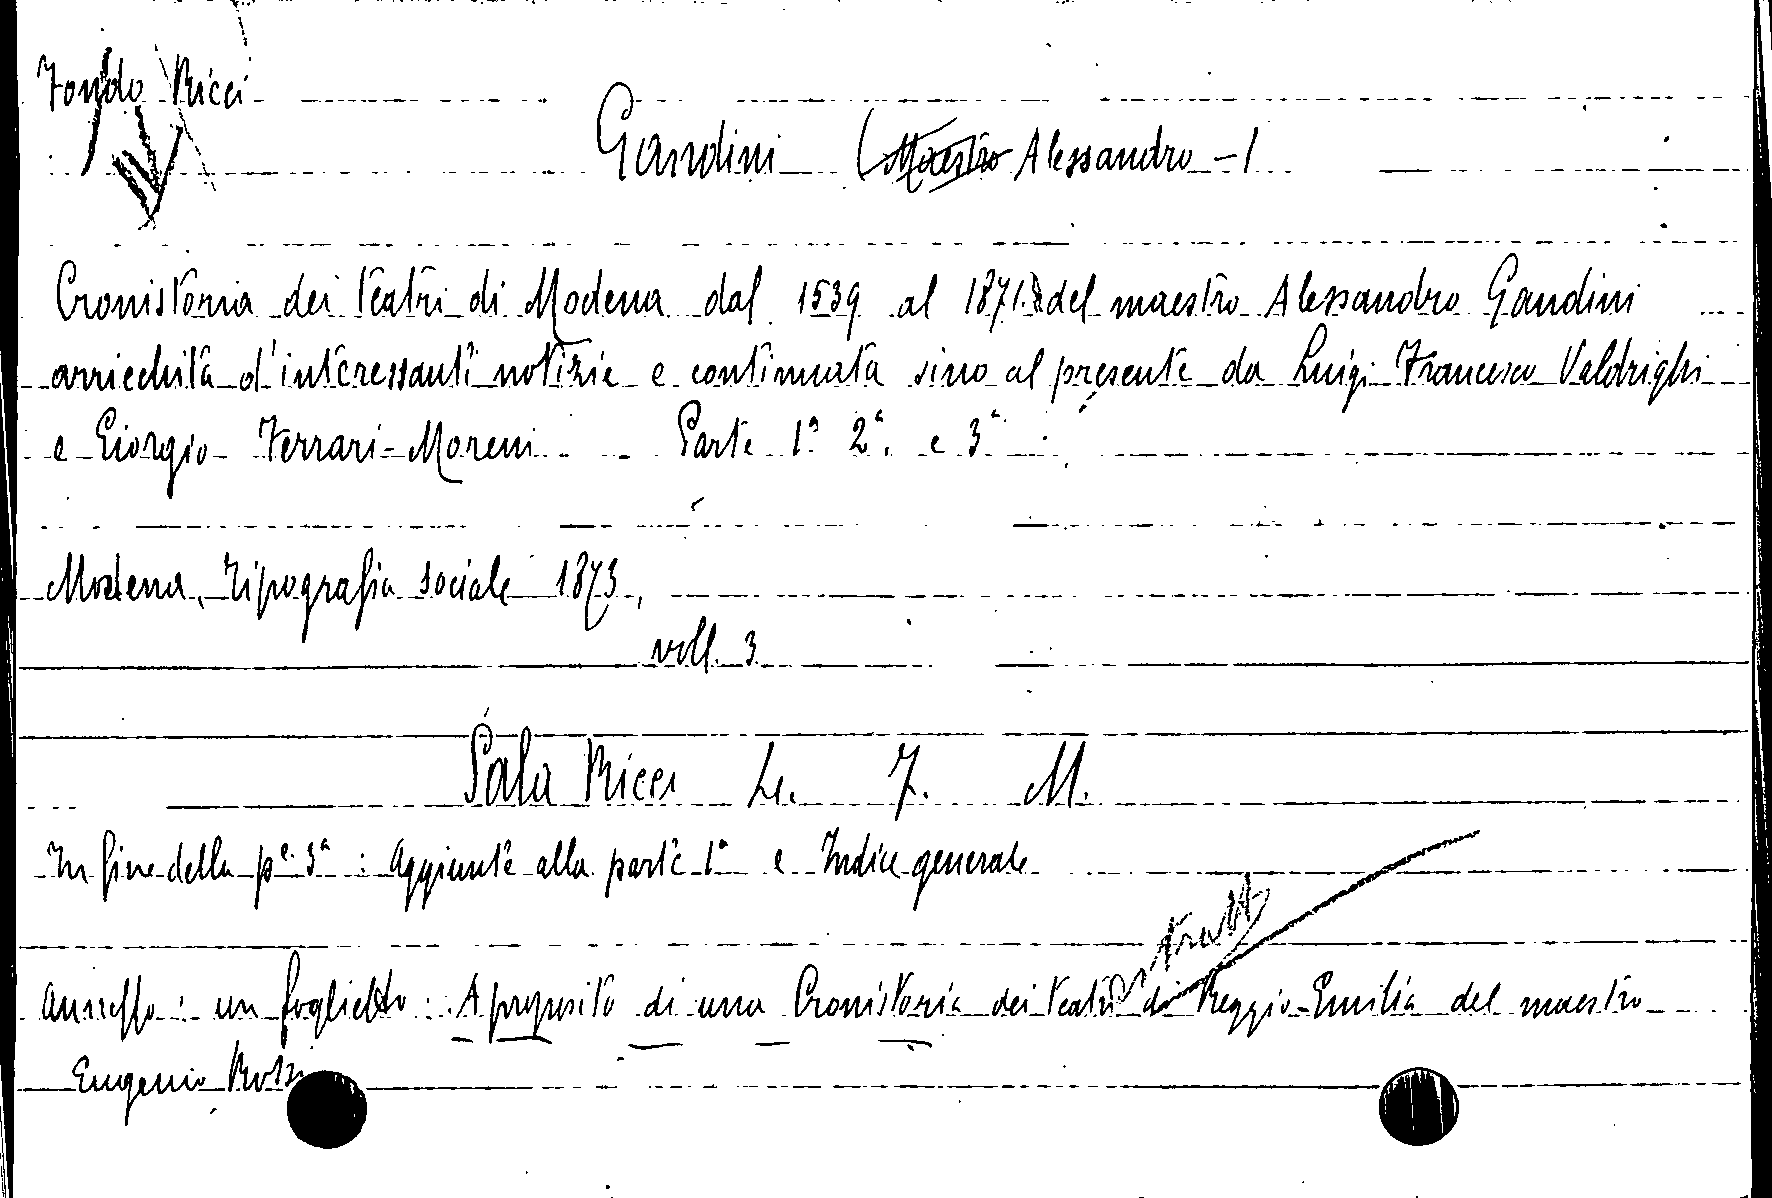 Fondo Ricci
Gandini (Maestro Alessandro -)
Cronistoria dei teatri di Modena dal 1539 al 1871. del maestro Alessandro Gandini
arricchita d'interessanti notizie e continuata sino al presente da Luigi Francesco Valdrighi
e Giorgio Ferrari-Moreni Parte 1ª 2ª. e 3ª
Modena, Tipografia sociale 1873,
voll. 3
Sala Ricci L. F. M.
In fine della pe. 3ª: Aggiunte alla parte 1ª e Indice generale
annesso: un foglietto: A proposito di una Cronistoria dei teatri di Reggio-Emilia del maestro
Eugenio